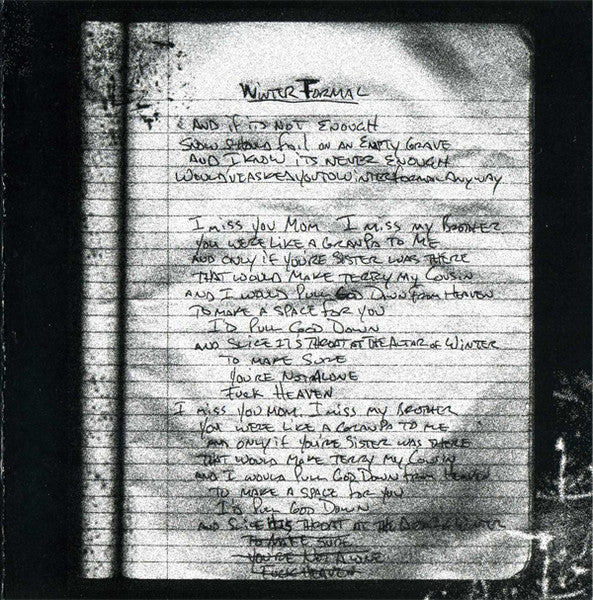 WINTER FORMAL
AND if iTS NOT ENOUGH
SNOW SHOULD fall ON AN EMPTY GRAVE
AND I KNOW iTS NEVER ENOUGH
WOULD'VE ASKED YOU TO WINTER FORMAL ANYWAY
I miss YOU MOM I miss MY BROTHER
YOU WERE LIKE A GRANPA TO ME
AND ONLY if YOU'RE SISTER WAS THERE
THAT WOULD MAKE TERRY MY COUSIN
AND I WOULD PULL GOD DOWN FROM HEAVEN
TO MAKE A SPACE FOR YOU
I'D PULL GOD DOWN
AND SLICE ITS THROAT AT THE ALTAR OF WINTER
TO MAKE SURE
YOU'RE NOT ALONE
FUCK HEAVEN
I miss YOU MOM. I miss MY BROTHER
YOU WERE LIKE A GRANPA TO ME
AND ONLY if YOU'RE SISTER WAS THERE
THAT WOULD MAKE TERRY MY COUSIN
AND I WOULD PULL GOD DOWN FROM HEAVEN
TO MAKE A SPACE FOR YOU
I'D PULL GOD DOWN
AND SLICE ITS THROAT AT THE ALTAR OF WINTER
TO MAKE SURE
YOU'RE NOT ALONE
FUCK HEAVEN